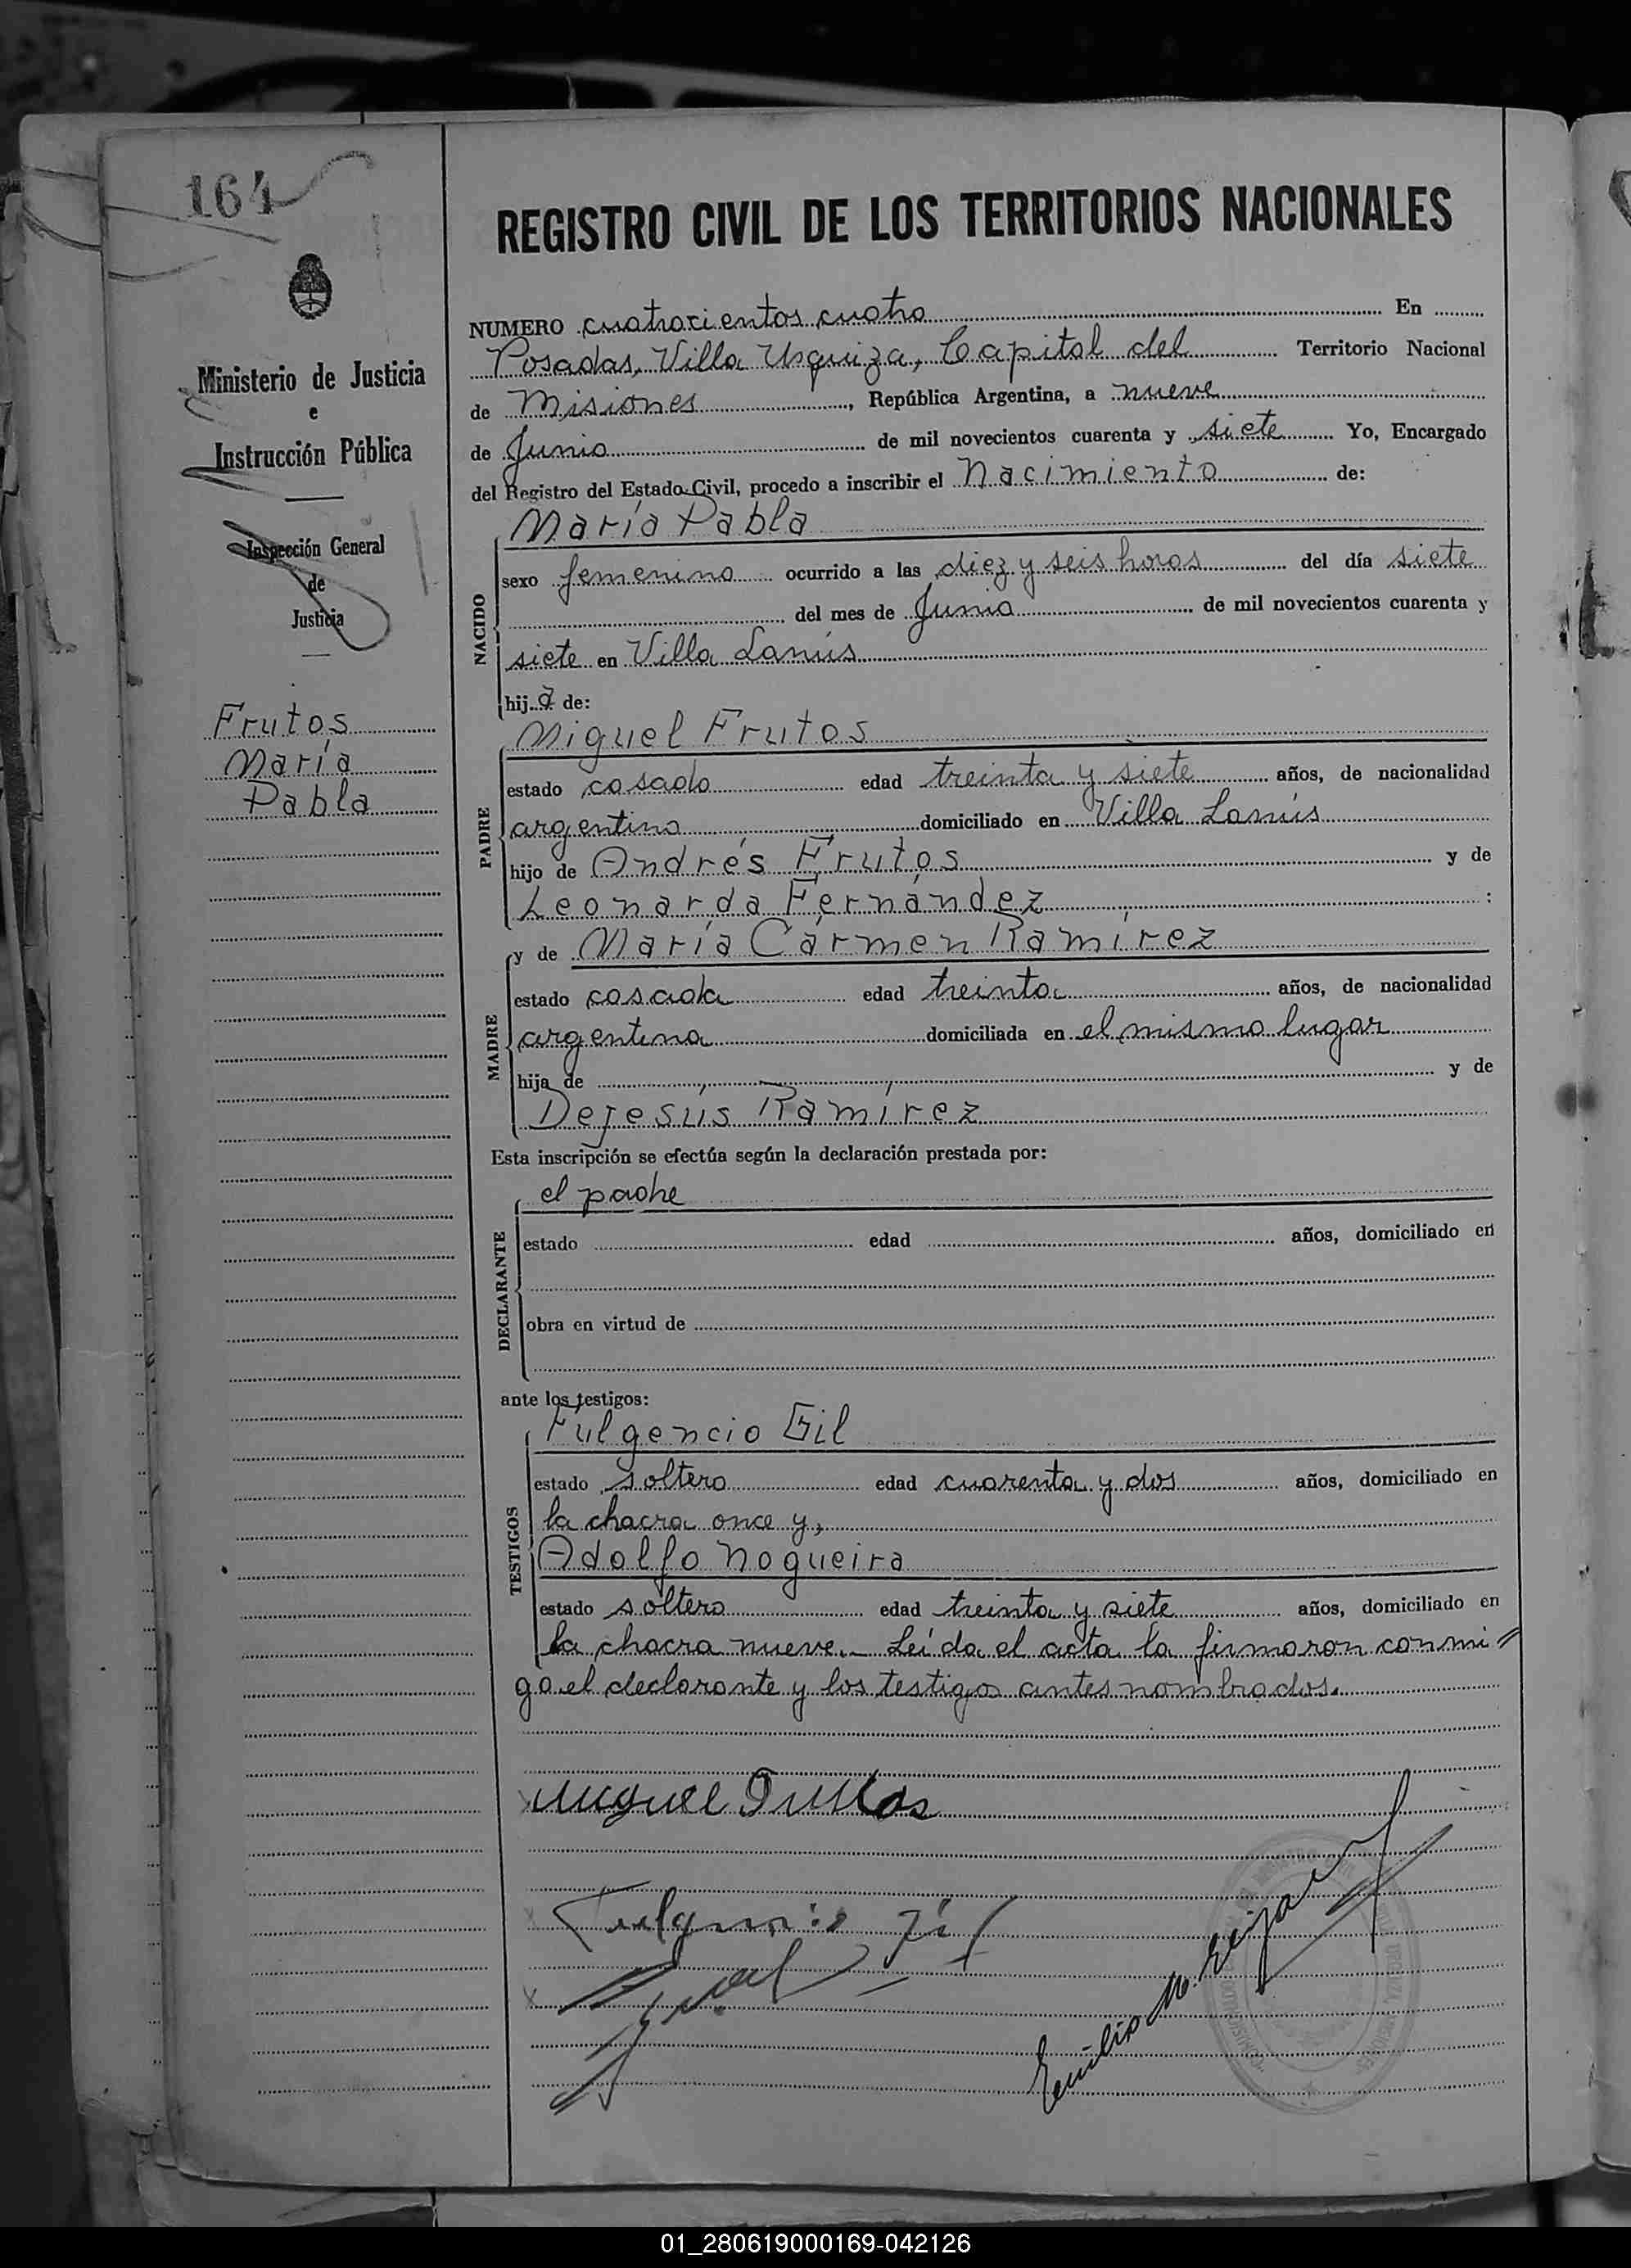 164
Ministerio de Justicia
e
Instrucción Pública
Inspección General
de
Justicia
Frutos
María
Pabla
REGISTRO CIVIL DE LOS TERRITORIOS NACIONALES
NUMERO cuatrocientos cuatro En
Posadas, Villa Urquiza, Capital del Territorio Nacional
de Misiones, República Argentina, a nueve
de Junio de mil novecientos cuarenta y siete Yo, Encargado
del Registro del Estado Civil, procedo a inscribir el Nacimiento de:
María Pabla
NACIDO
sexo femenino ocurrido a las diez y seis horas del día siete
del mes de Junio de mil novecientos cuarenta y
siete en Villa Lanús
hija de:
Miguel Frutos
PADRE
estado casado edad treinta y siete años, de nacionalidad
argentino domiciliado en Villa Lanús
hijo de Andrés Frutos y de
Leonarda Fernández :
y de María Cármen Ramírez
MADRE
estado casada edad treinta años, de nacionalidad
argentina domiciliada en el mismo lugar
hija de y de
Dejesús Ramírez
Esta inscripción se efectúa según la declaración prestada por:
el padre
DECLARANTE
estado edad años, domiciliado en
obra en virtud de
ante los testigos:
Fulgencio Gil
TESTIGOS
estado soltero edad cuarenta y dos años, domiciliado en
la chacra once y,
Adolfo Nogueira
estado soltero edad treinta y siete años, domiciliado en
la chacra nueve.- Leída el acta la firmaron conmi=
go el declarante y los testigos antes nombrados.
Miguel Frutos
Fulgencio Gil
Emilio
01_280619000169-042126